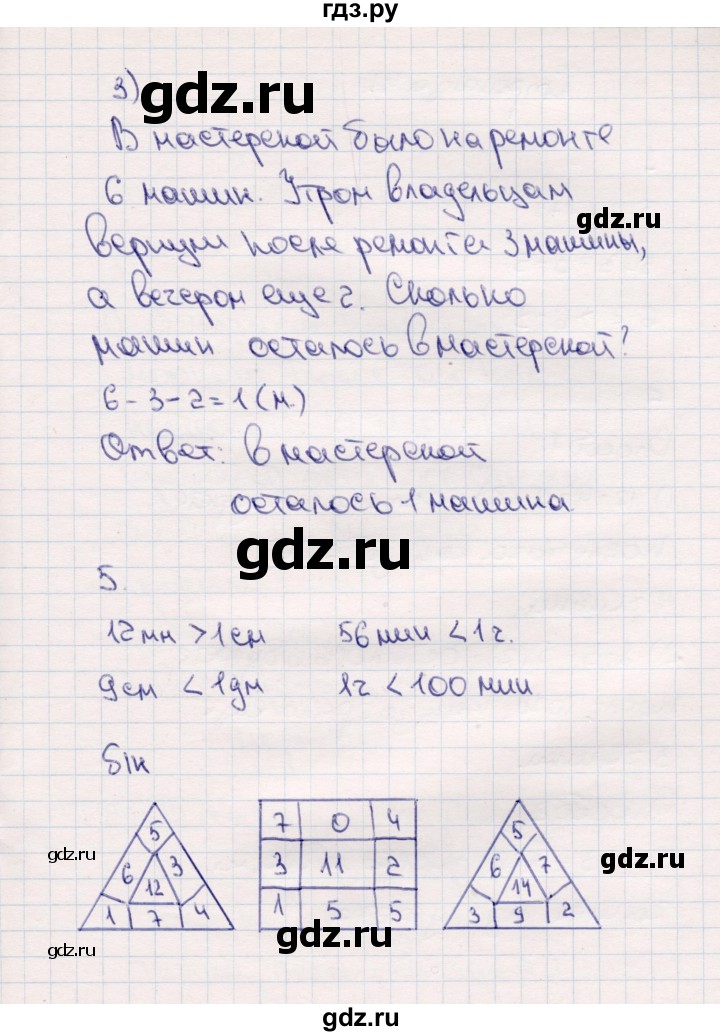 гдз.ру
3) gdz.ru
В мастерской было на ремонте
6 машин. Утром владельцам
gdz.ru
вернули после ремонта 3 машины,
а вечером еще 2. Сколько
машин осталось в мастерской?
6 - 3 - 2 = 1 (м.)
Ответ: в мастерской
осталось 1 машина
gdz.ru
5.
12 мм > 1 см 56 мин < 1 ч.
9 см < 1 дм 1ч < 100 мин
БИК
5 7 0 4 5
gdz.ru 6 3 3 11 2 6 7 gdz.ru
12 14
1 7 4 1 5 5 3 9 2
gdz.ru
gdz.ru gdz.ru
gdz.ru